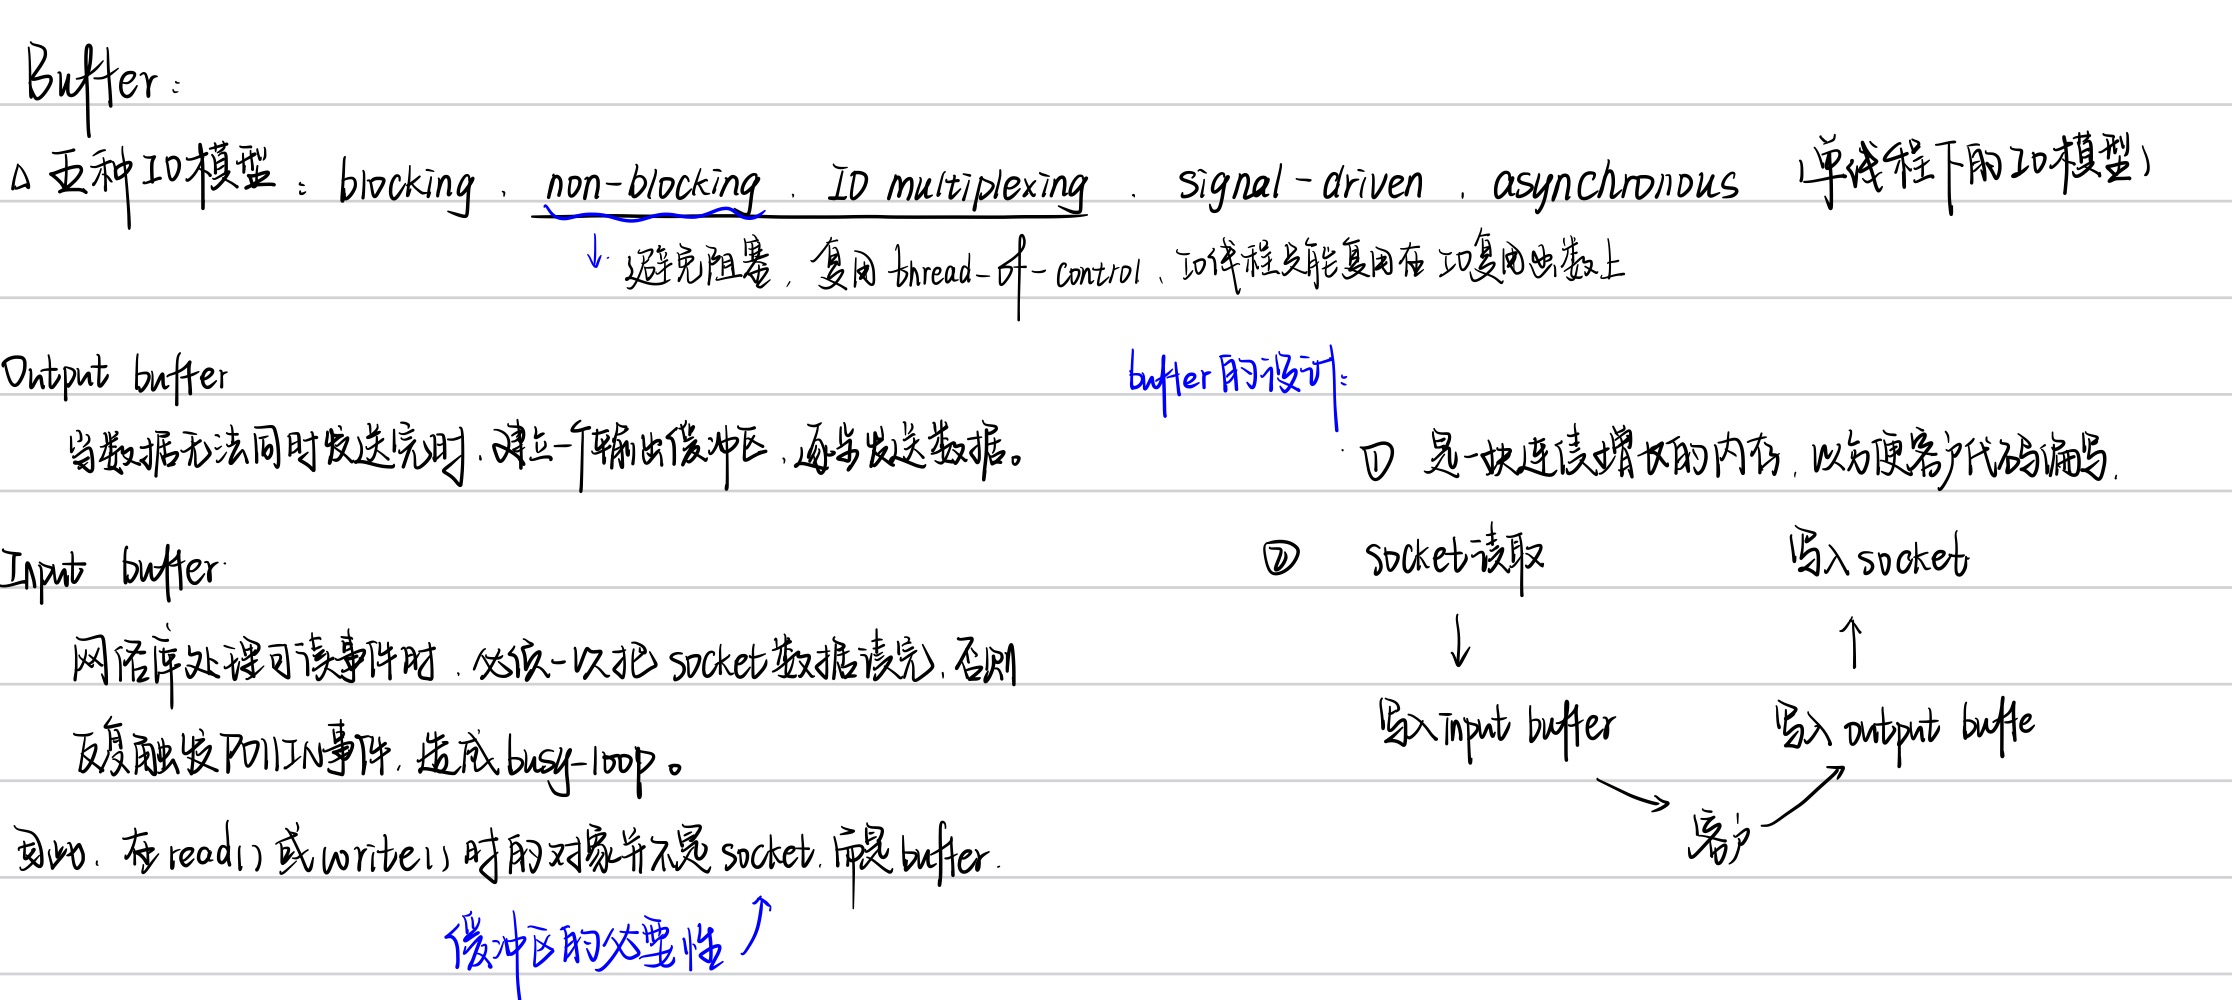 Buffer:
△ 五种IO模型: blocking、non-blocking、IO multiplexing、signal-driven、asynchronous (单线程下的IO模型)
↓ 避免阻塞, 复用 thread-of-control、IO线程只能复用在IO复用函数上
Output buffer
当数据无法同时发送完时、建立一个输出缓冲区、逐步发送数据。
Input buffer
网络库处理可读事件时、必须一次把socket数据读完、否则
反复触发POllIN事件、造成busy-loop。
因此、在read()或write()时的对象并不是socket、而是buffer.
缓冲区的必要性
buffer的设计:
① 是一块连续增长的内存、以方便客户代码编写.
② socket读取 写入socket
↓ ↑
写入input buffer 写入output buffe
客户